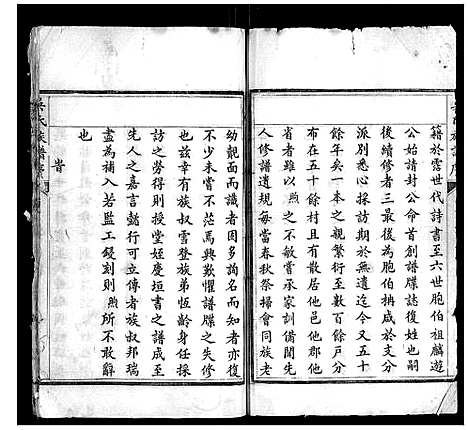 籍於霑世代詩書至六世胞伯祖麟遊
公始請封公命首創譜牒誌復姓也嗣
後續修者三最後為胞伯柟咸於支分
派別悉心採訪期於無遺迄今又五十
餘年矣一本之親繁衍至數百餘戶分
布在五十餘村且有散居他邑他郡他
省者雖以煦之不才嘗承家訓備聞先
人修譜遺規每當春秋祭掃會同族老
幼覿面而識者固多詢名而知者亦復
不少未嘗不茫焉興歎懼譜牒之失修
也茲幸有族叔雪登族弟恆齡身任採
訪之勞得則授堂姪慶垣書之譜成至
先人之嘉言懿行可立傳者族叔邦瑞
盡為補入若監工錢刻則煦所不敢辭
也